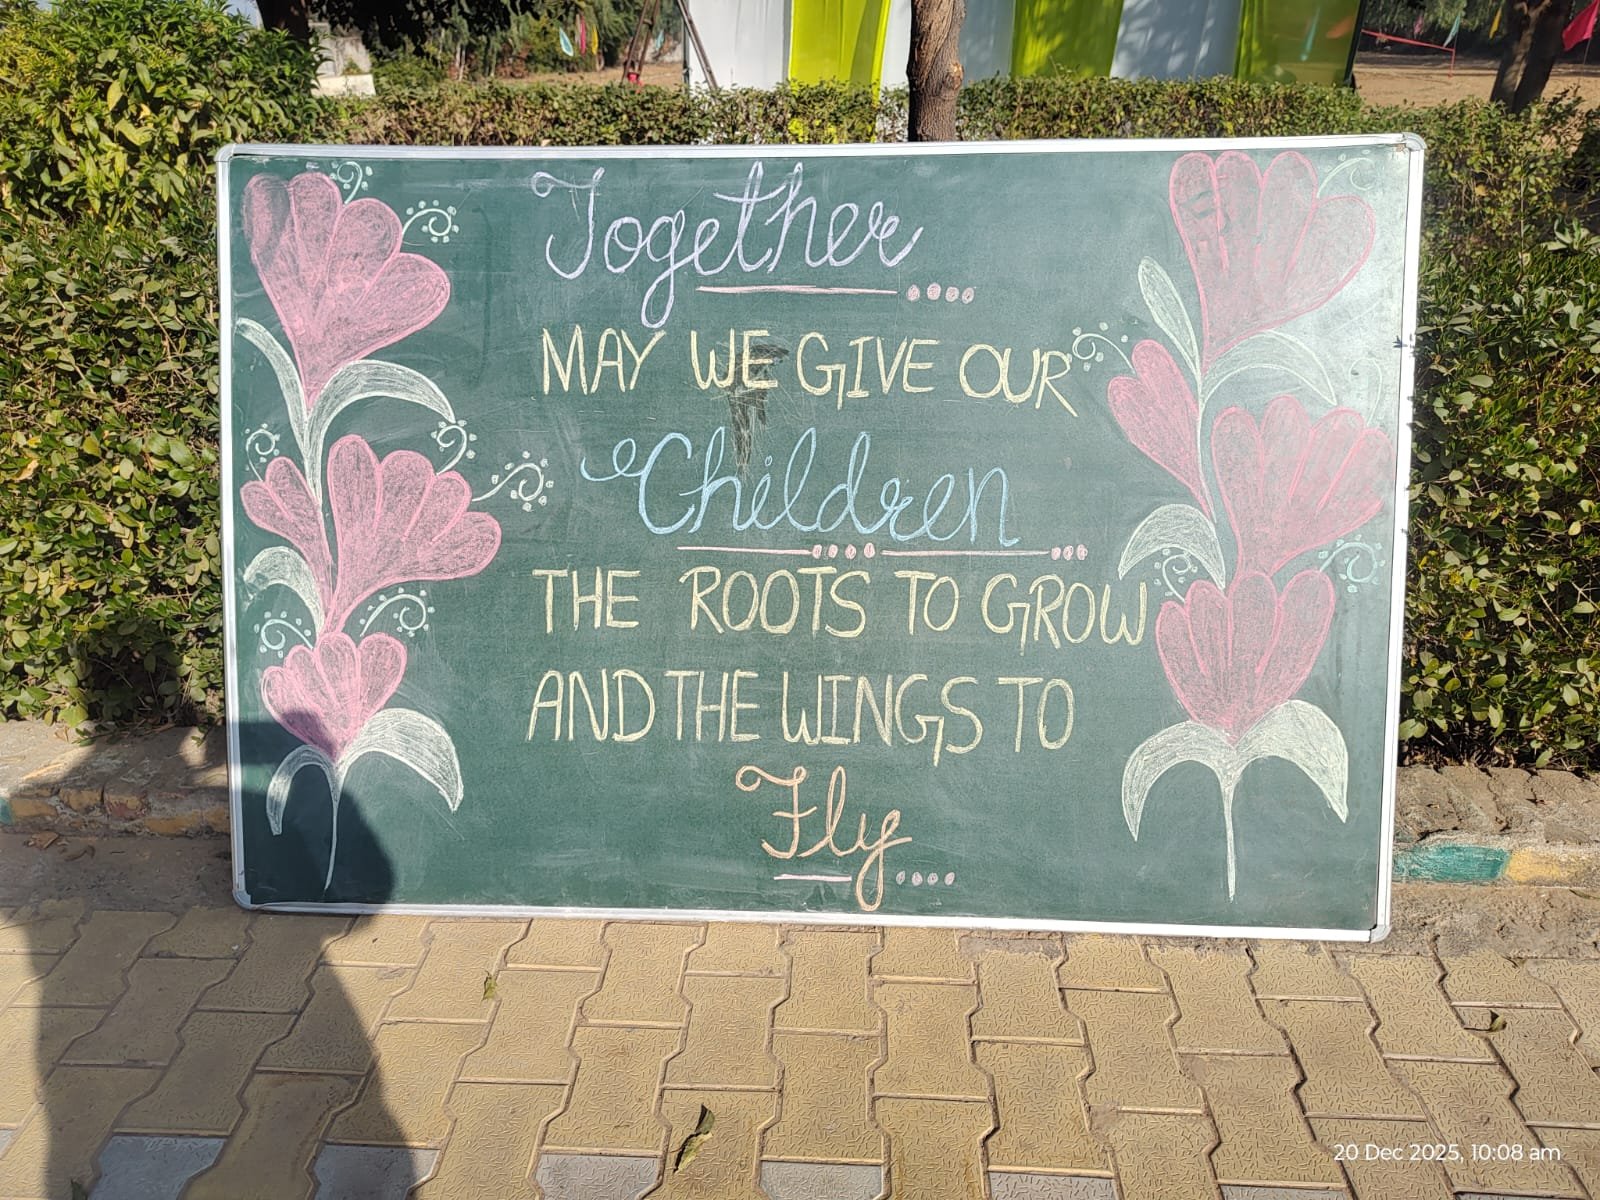 Together
MAY WE GIVE OUR
Children
THE ROOTS TO GROW
AND THE WINGS TO
Fly
20 Dec 2025, 10:08 am